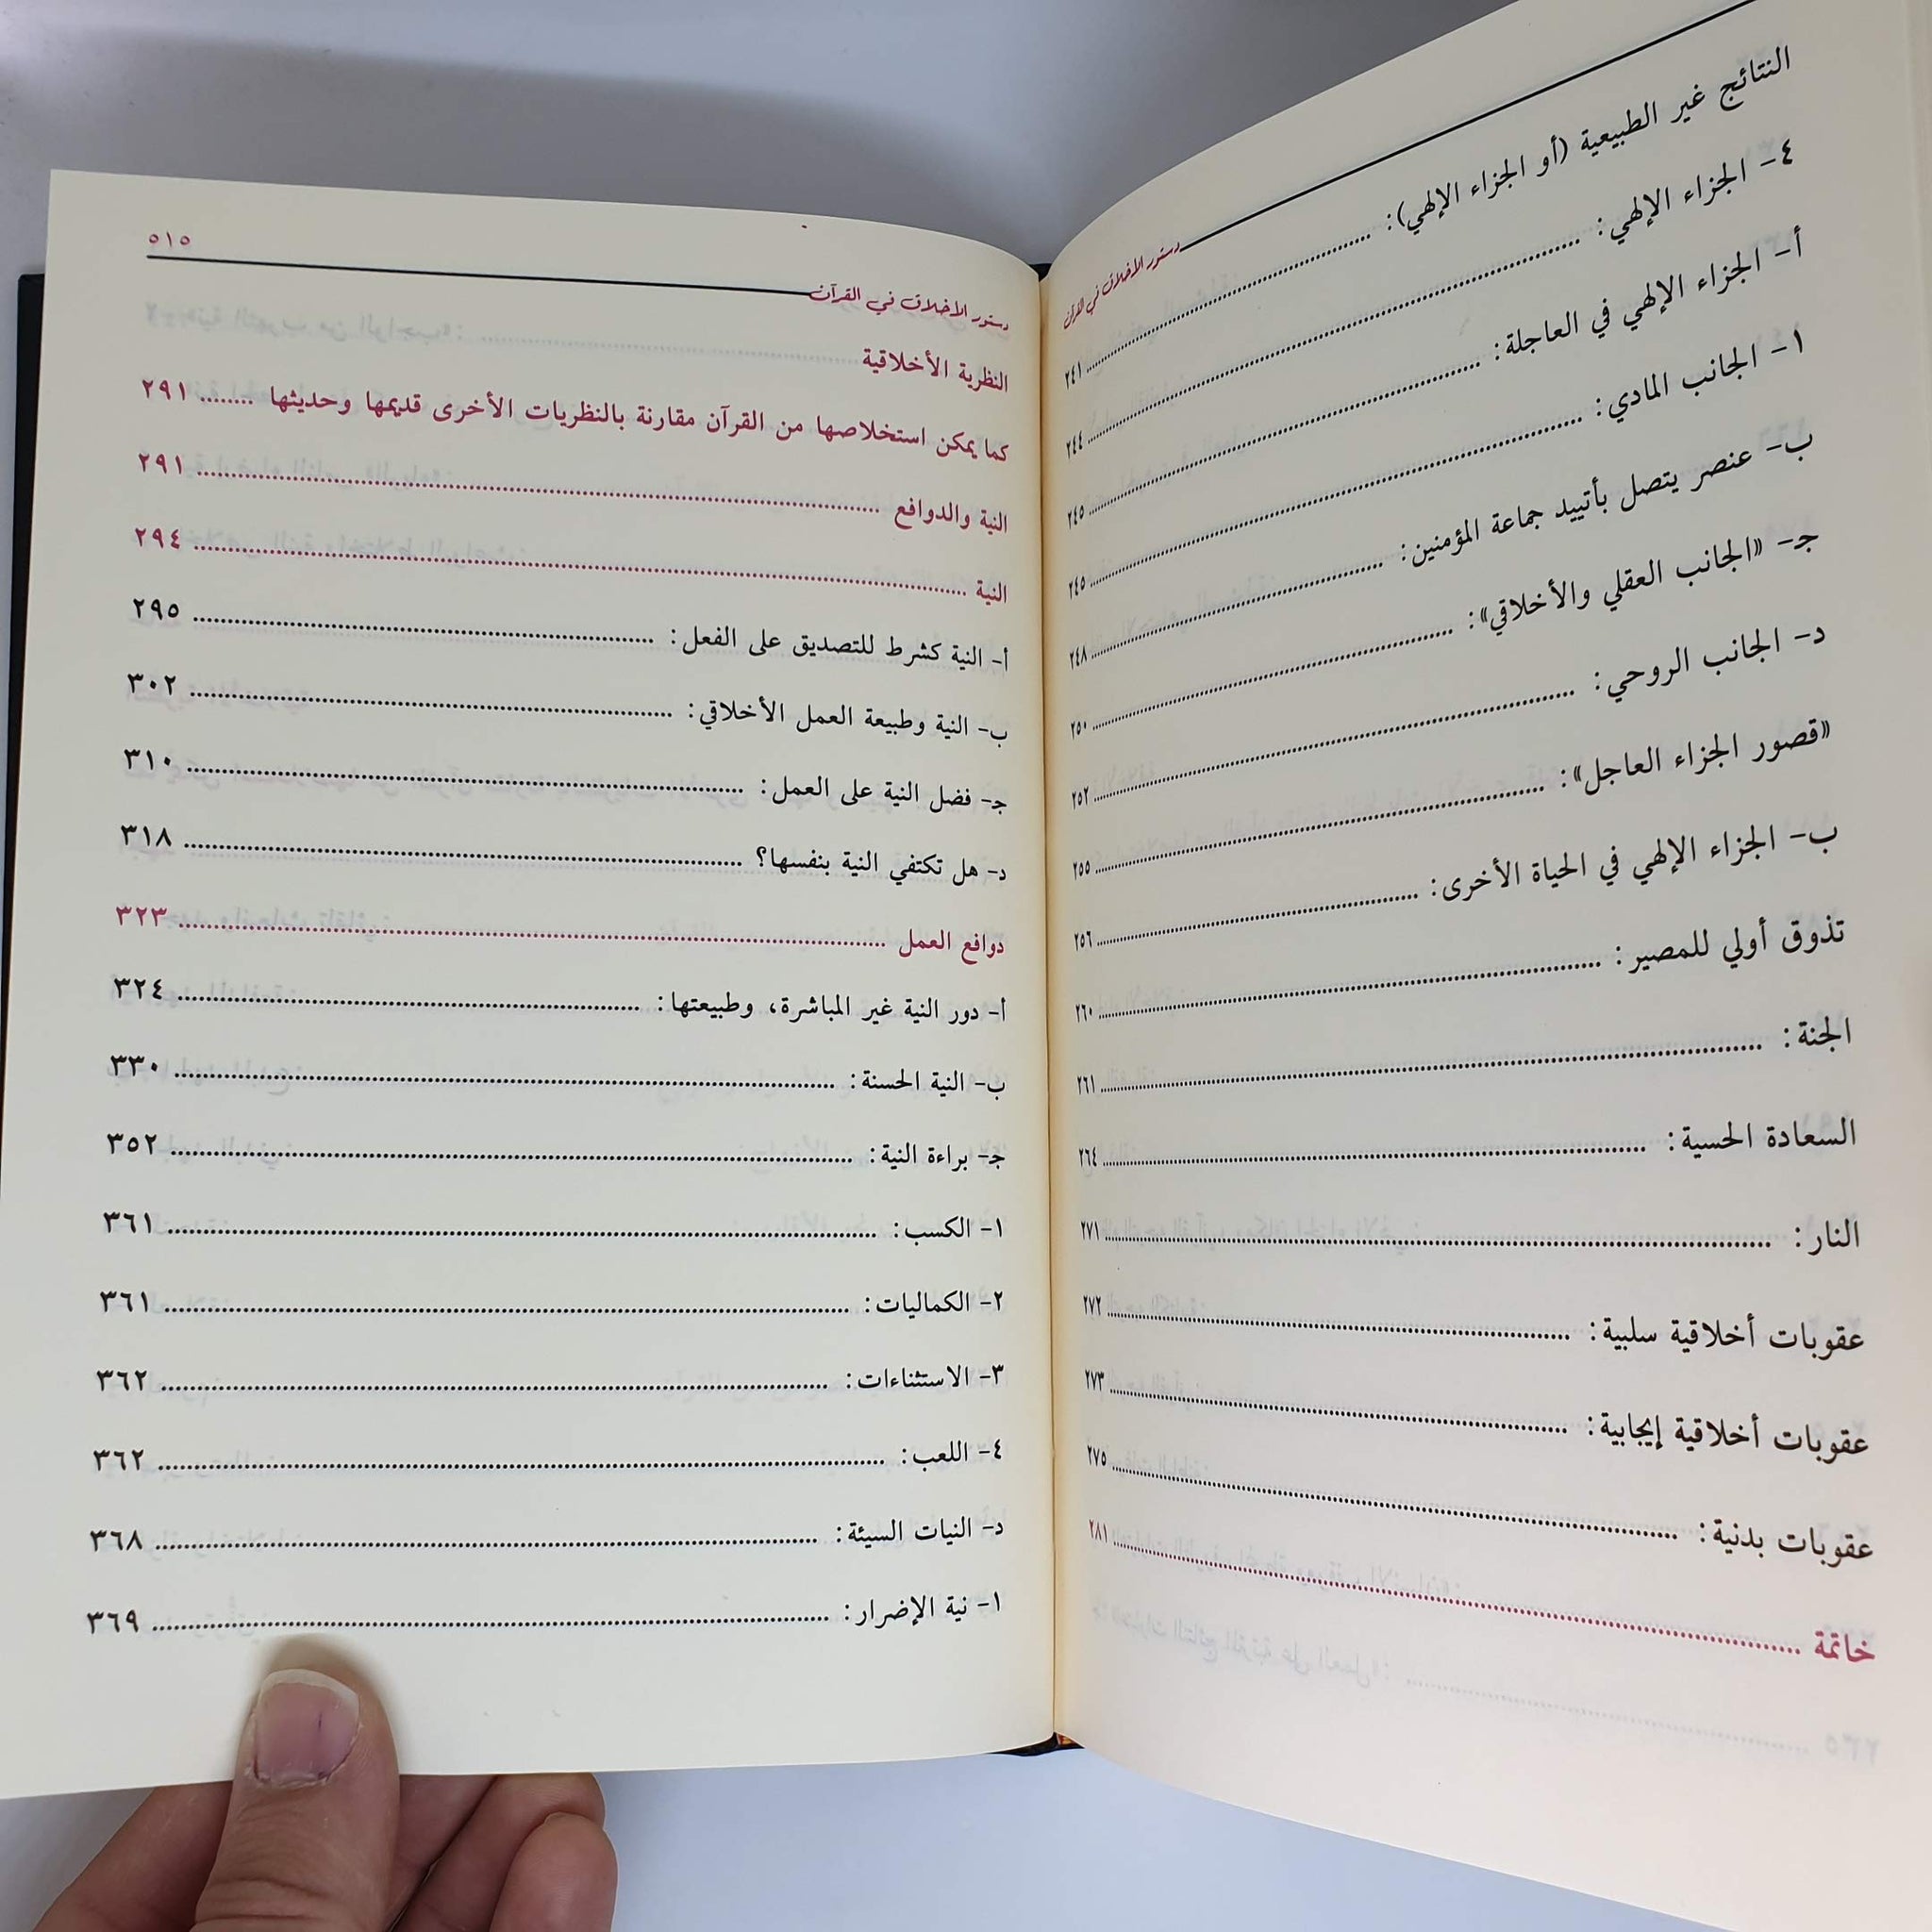 دستور الأخلاق في القرآن
النتائج غير الطبيعية (أو الجزاء الإلهي): ........ ٢٤١
٤- الجزاء الإلهي: ........ ٢٤٤
أ- الجزاء الإلهي في العاجلة: ........ ٢٤٥
١- الجانب المادي: ........ ٢٤٥
ب- عنصر يتصل بأتييد جماعة المؤمنين: ........ ٢٤٨
جـ- «الجانب العقلي والأخلاقي»: ........ ٢٥٠
د- الجانب الروحي: ........ ٢٥٢
«قصور الجزاء العاجل»: ........ ٢٥٥
ب- الجزاء الإلهي في الحياة الأخرى: ........ ٢٥٦
تذوق أولي للمصير: ........ ٢٦٠
الجنة: ........ ٢٦١
السعادة الحسية: ........ ٢٦٤
النار: ........ ٢٧١
عقوبات أخلاقية سلبية: ........ ٢٧٢
عقوبات أخلاقية إيجابية: ........ ٢٧٣
عقوبات بدنية: ........ ٢٧٥
خاتمة ........ ٢٨١
٥١٥
دستور الأخلاق في القرآن
النظرية الأخلاقية
كما يمكن استخلاصها من القرآن مقارنة بالنظريات الأخرى قديمها وحديثها ........ ٢٩١
النية والدوافع ........ ٢٩١
النية ........ ٢٩٤
أ- النية كشرط للتصديق على الفعل: ........ ٢٩٥
ب- النية وطبيعة العمل الأخلاقي: ........ ٣٠٢
جـ- فضل النية على العمل: ........ ٣١٠
د- هل تكتفي النية بنفسها؟ ........ ٣١٨
دوافع العمل ........ ٣٢٣
أ- دور النية غير المباشرة، وطبيعتها: ........ ٣٢٤
ب- النية الحسنة: ........ ٣٣٠
جـ- براءة النية: ........ ٣٥٢
١- الكسب: ........ ٣٦١
٢- الكماليات: ........ ٣٦١
٣- الاستثناءات: ........ ٣٦٢
٤- اللعب: ........ ٣٦٢
د- النيات السيئة: ........ ٣٦٨
١- نية الإضرار: ........ ٣٦٩